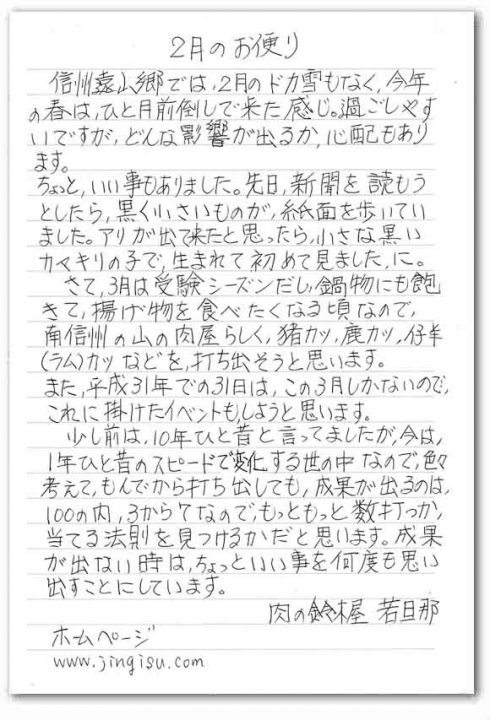 2月のお便り
信州遠山郷では、2月のドカ雪もなく、今年
の春は、ひと月前倒しで来た感じ。過ごしやす
いですが、どんな影響が出るか、心配もあり
ます。
ちょっと、いい事もありました。先日、新聞を読もう
としたら、黒く小さいものが、紙面を歩いてい
ました。アリが出て来たと思ったら、小さな黒い
カマキリの子で、生まれて初めて見ました、に。
さて、3月は受験シーズンだし、鍋物にも飽
きて、揚げ物を食べたくなる頃なので、
南信州の山の肉屋らしく、猪カツ、鹿カツ、仔羊
(ラム)カツなどを、打ち出そうと思います。
また、平成31年での31日は、この3月しかないので、
これに掛けたイベントもしようと思います。
少し前は、10年ひと昔と言ってましたが、今は、
1年ひと昔のスピードで変化する世の中なので、色々
考えて、もんでから打ち出しても、成果が出るのは、
100の内、3から7なので、もっともっと数打つか、
当てる法則を見つけるかだと思います。成果
が出ない時は、ちょっといい事を何度も思い
出すことにしています。
肉の鈴木屋 若旦那
ホームページ
www.jingisu.com